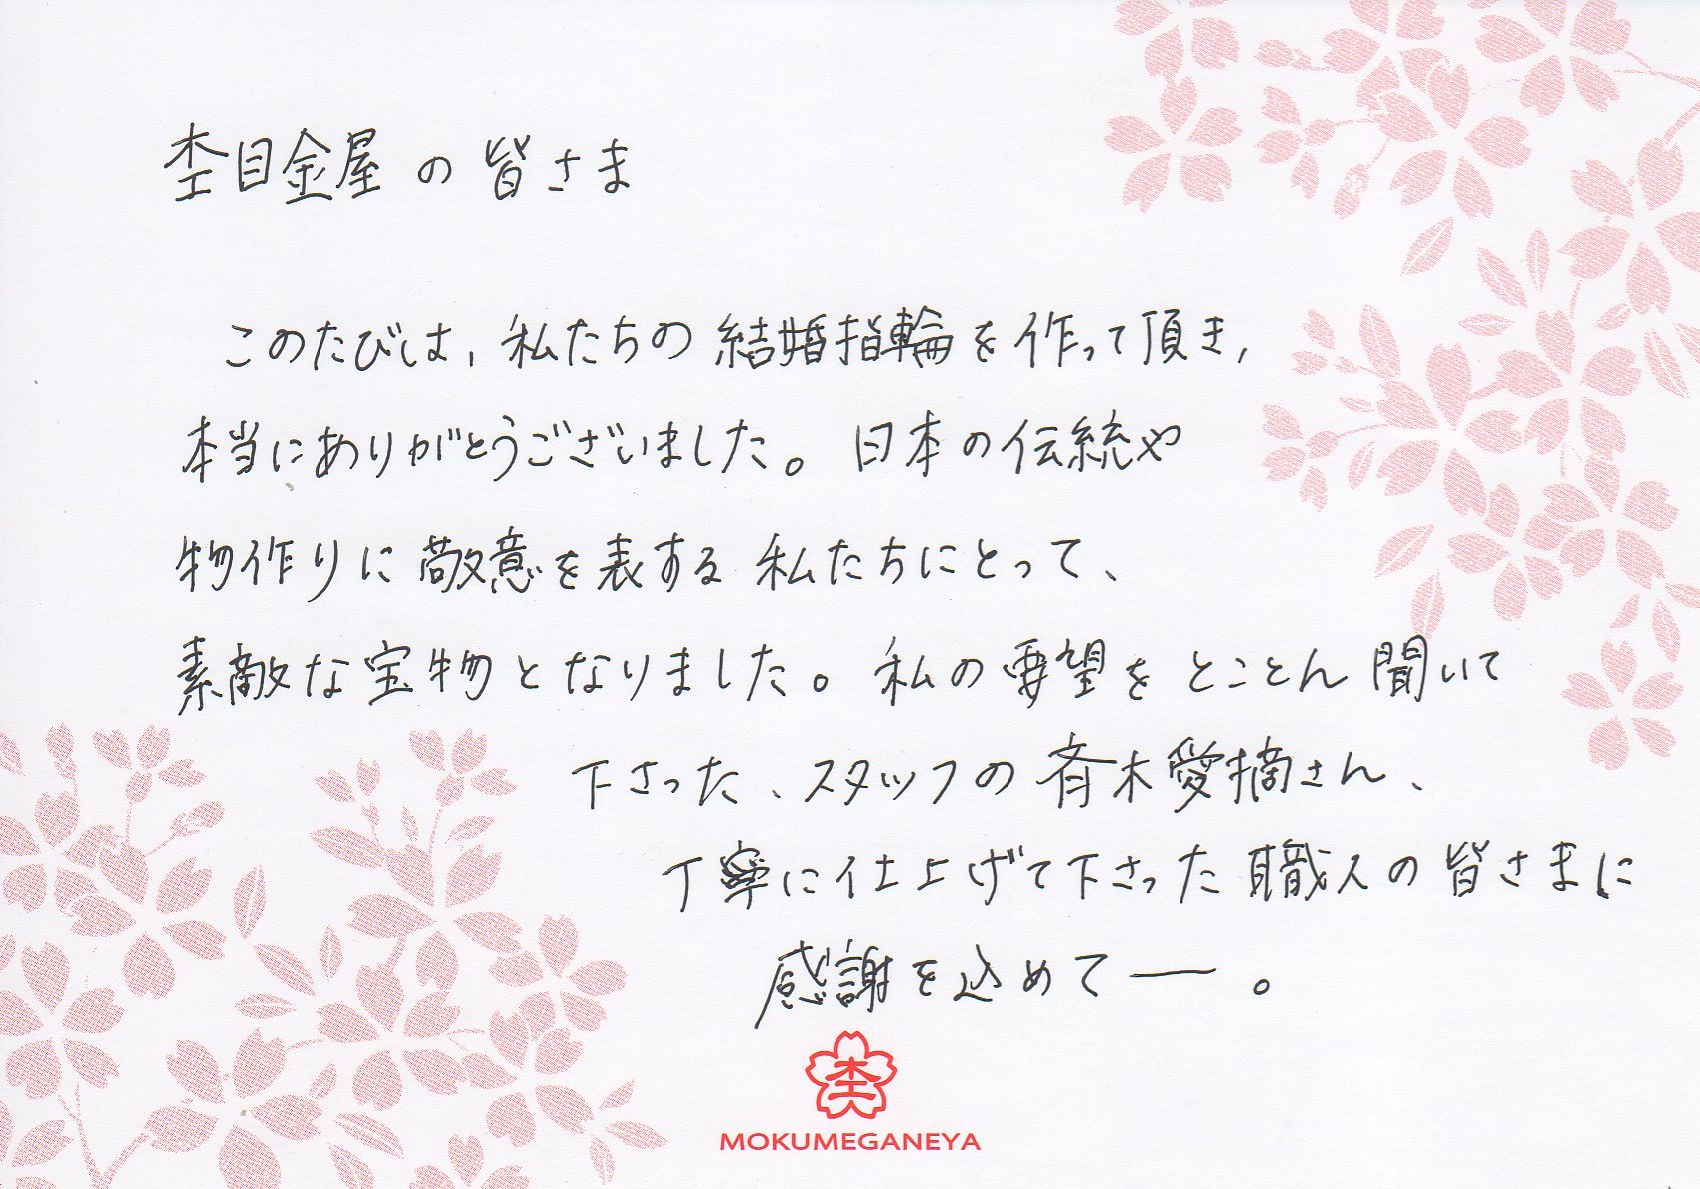 杢目金屋の皆さま
このたびは、私たちの結婚指輪を作って頂き、
本当にありがとうございました。日本の伝統や
物作りに敬意を表する私たちにとって、
素敵な宝物となりました。私の要望をとことん聞いて
下さった、スタッフの斉木愛摘さん、
丁寧に仕上げて下さった職人の皆さまに
感謝を込めて―。
杢
MOKUMEGANEYA